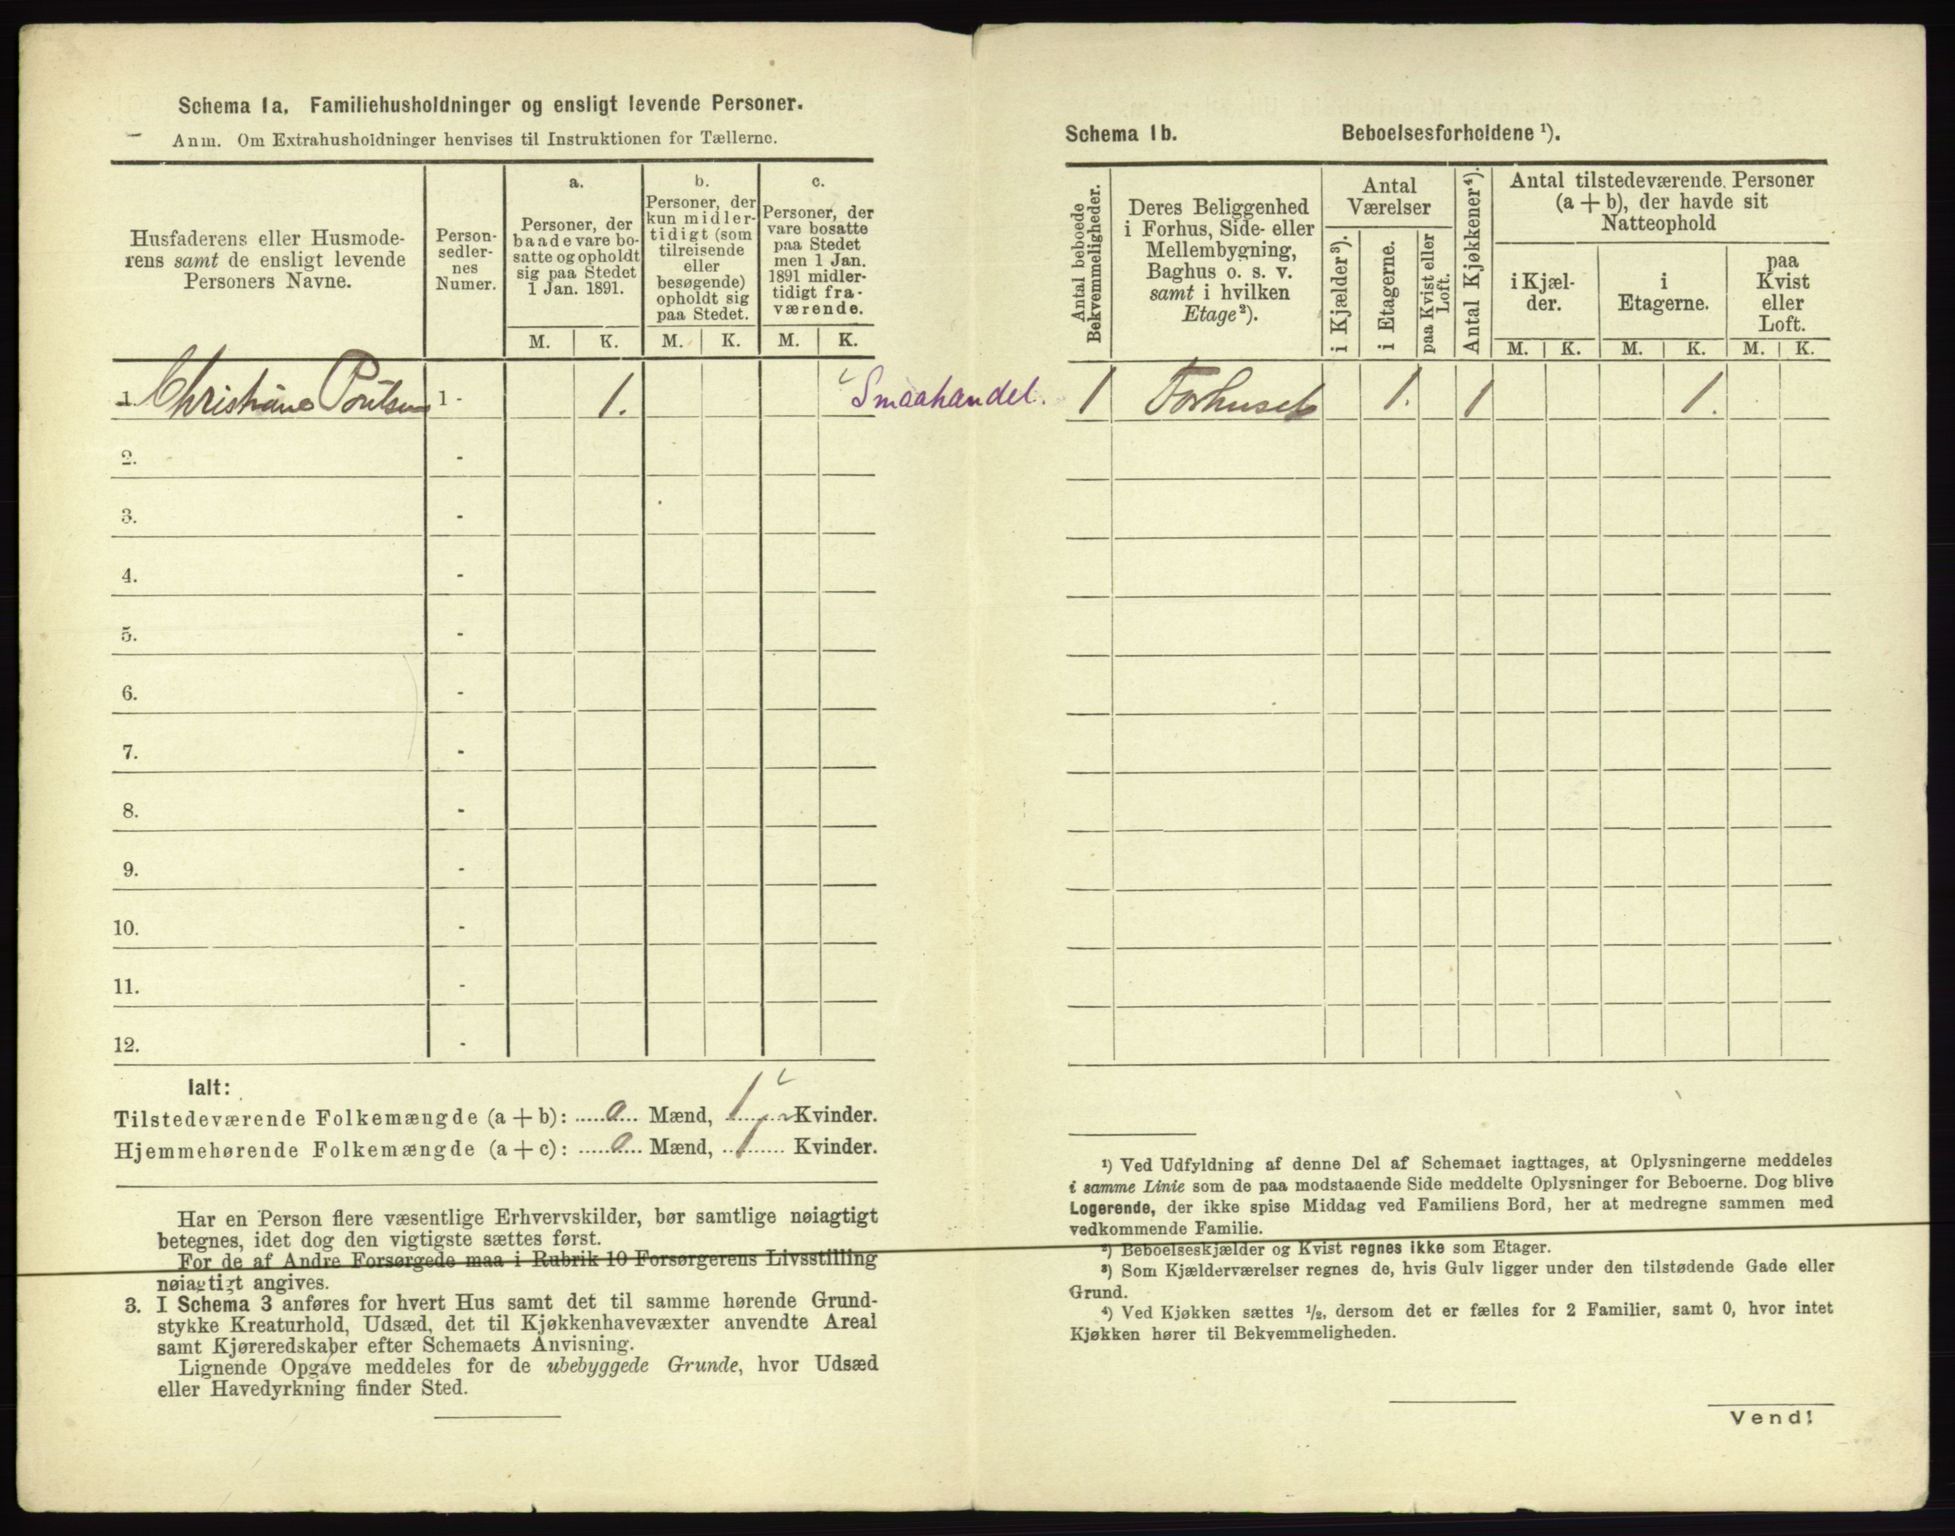 Schema 1a. Familiehusholdninger og ensligt levende Personer.
Anm. Om Extrahusholdninger henvises til Instruktionen for Tællerne.
Husfaderens eller Husmode-
rens samt de ensligt levende
Personers Navne.
Person-
sedler-
nes
Numer.
a.
Personer, der
baade vare bo-
satte og opholdt
sig paa Stedet
1 Jan. 1891.
b.
Personer, der
kun midler-
tidigt (som
tilreisende
eller
besøgende)
opholdt sig
paa Stedet.
c.
Personer, der
vare bosatte
paa Stedet
men 1 Jan.
1891 midler-
tidigt fra-
værende.
M. K. M. K. M. K.
1. Christiane 1 - 1. Smaahandel.
2. -
3. -
4. -
5. -
6. -
7. -
8. -
9. -
10. -
11. -
12. -
Ialt:
Tilstedeværende Folkemængde (a + b): ..... 0 ... Mænd, 1 Kvinder.
Hjemmehørende Folkemængde (a + c): ..... 0 ... Mænd, 1 Kvinder.
Har en Person flere væsentlige Erhvervskilder, bør samtlige nøiagtigt
betegnes, idet dog den vigtigste sættes først.
For de af Andre Forsørgede maa i Rubrik 10 Forsørgerens Livsstilling
nøiagtigt angives.
3. I Schema 3 anføres for hvert Hus samt det til samme hørende Grund-
stykke Kreaturhold, Udsæd, det til Kjøkkenhavevæxter anvendte Areal
samt Kjøreredskaber efter Schemaets Anvisning.
Lignende Opgave meddeles for de ubebyggede Grunde, hvor Udsæd
eller Havedyrkning finder Sted.
Schema 1b. Beboelsesforholdene ¹).
Antal beboede
Bekvemmeligheder.
Deres Beliggenhed
i Forhus, Side- eller
Mellembygning,
Baghus o. s. v.
samt i hvilken
Etage²).
Antal
Værelser
i Kjælder³).
i Etagerne.
paa Kvist eller
Loft.
Antal Kjøkkener⁴).
Antal tilstedeværende Personer
(a + b), der havde sit
Natteophold
i Kjæl-
der.
i
Etagerne.
paa
Kvist
eller
Loft.
M. K. M. K. M. K.
1 Forhuset 1. 1 1.
¹) Ved Udfyldning af denne Del af Schemaet iagttages, at Oplysningerne meddeles
i samme Linie som de paa modstaaende Side meddelte Oplysninger for Beboerne. Dog blive
Logerende, der ikke spise Middag ved Familiens Bord, her at medregne sammen med
vedkommende Familie.
²) Beboelseskjælder og Kvist regnes ikke som Etager.
³) Som Kjælderværelser regnes de, hvis Gulv ligger under den tilstødende Gade eller
Grund.
⁴) Ved Kjøkken sættes ½, dersom det er fælles for 2 Familier, samt 0, hvor intet
Kjøkken hører til Bekvemmeligheden.
Vend!